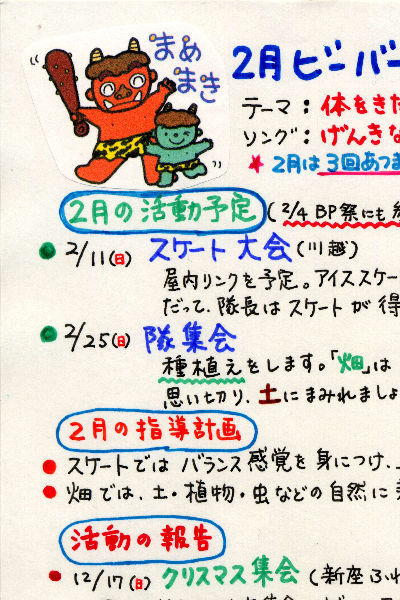 まめ
まき
2月ビーバー
テーマ：体をきた
ソング：げんきな
★2月は3回あつま
2月の活動予定(2/4 BP祭にも
●2/11(日) スケート大会(川越)
屋内リンクを予定。アイススケー
だって、隊長はスケートが得
●2/25(日) 隊集会
種植えをします。「畑」は
思い切り、土にまみれましょ
2月の指導計画
●スケートでは バランス感覚を身につけ、
●畑では、土・植物・虫などの自然に
活動の報告
●12/17(日) クリスマス集会(新座ふれ